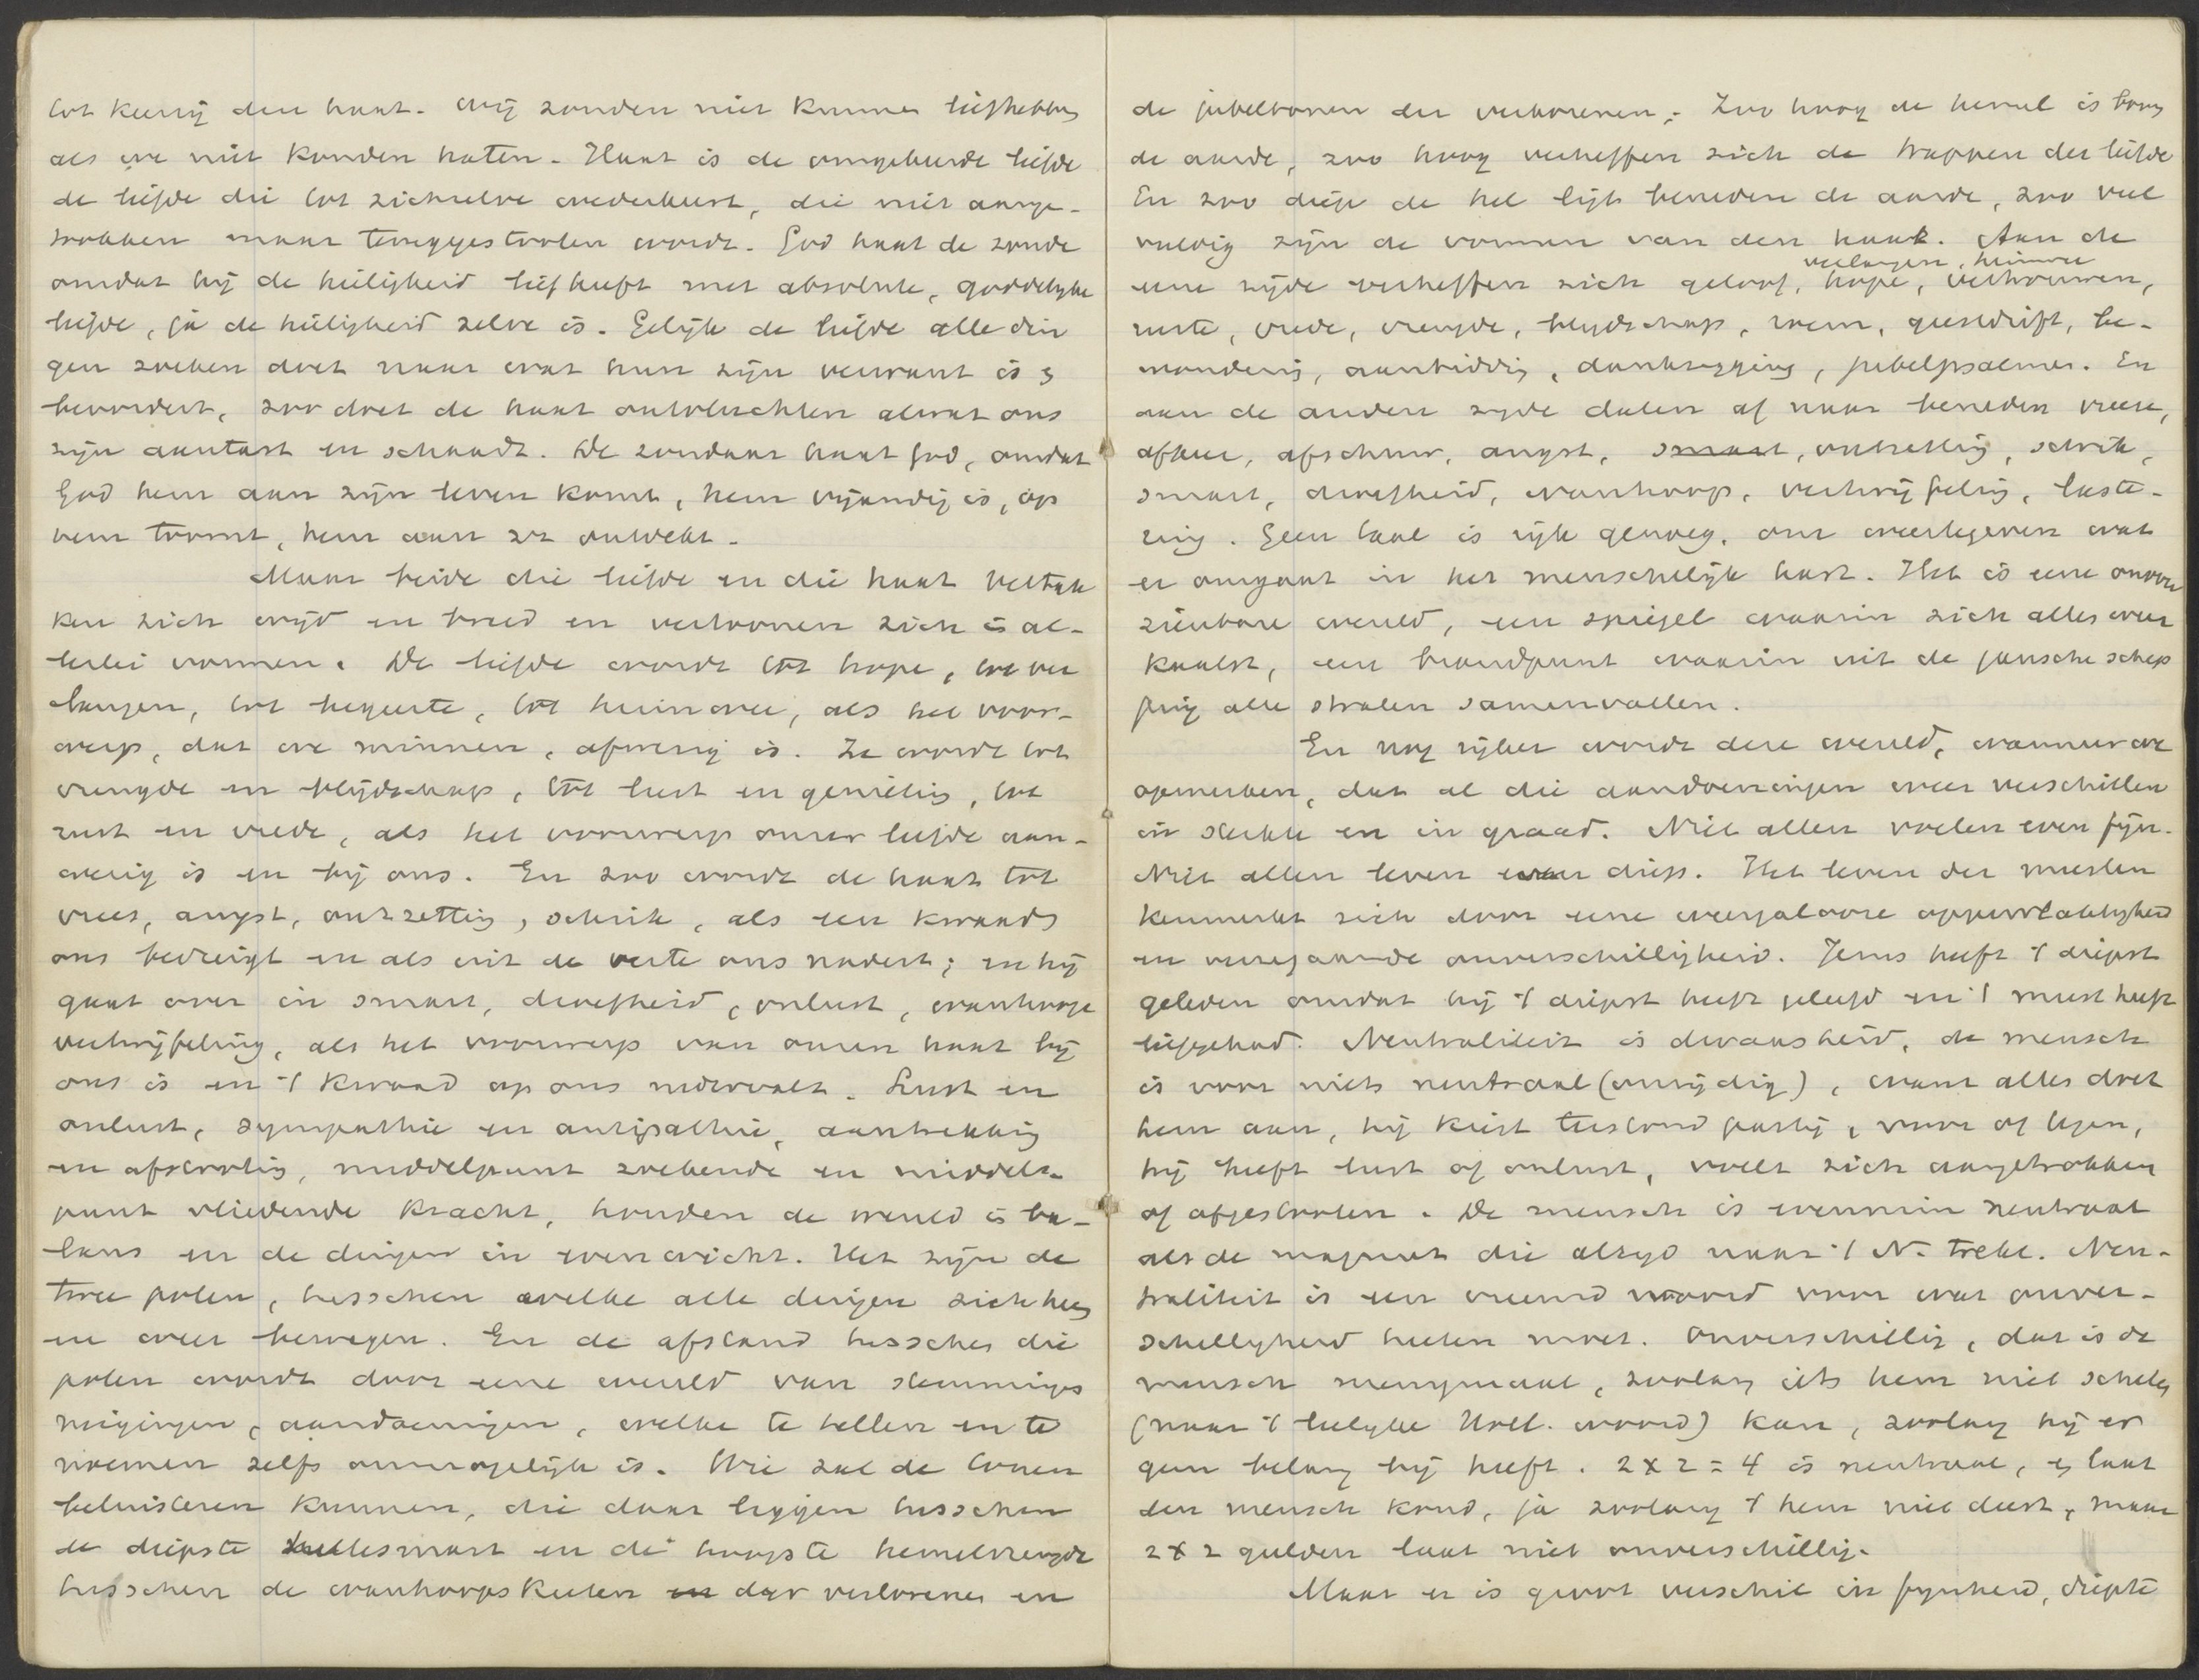 tot keerzij den haat. Wij zouden niet kunnen liefhebben
als we niet konden haten. Haat is de omgekeerde liefde
de liefde die tot zichzelve wederkeert, die niet aange-
trokken maar teruggestooten wordt. God haat de zonde
omdat hij de heiligheid liefheeft met absolute, goddelijke
liefde, ja de heiligheid zelve is. Gelijk de liefde alle din
gen zoeken doet naar wat hun zijn verwant is &
bevordert, zoo doet de haat ontvluchten alwat ons
zijn aantast en schaadt. De zondaar haat God, omdat
God hem aan zijn leven komt, hem vijandig is, op
hem toornt, hem aan zz ontdekt.
Maar beide die liefde en die haat vertak
ken zich wijd en breed en vertoonen zich in al-
lerlei vormen. De liefde wordt tot hope, tot ver
langen, tot begeerte, tot heimwee, als het voor-
werp, dat we minnen, afwezig is. Ze wordt tot
vreugde en blijdschap, tot lust en genieting, tot
rust en vrede, als het voorwerp onzer liefde aan-
wezig is en bij ons. En zoo wordt de haat tot
vrees, angst, ontzetting, schrik, als een kwaad
ons bedreigt en als uit de verte ons nadert; en hij
gaat over in smart, droefheid, onlust, wanhoop
vertwijfeling, als het voorwerp van onzen haat bij
ons is en 't kwaad op ons nedervalt. Lust en
onlust, sympathie en antipathie, aantrekking
en afstooting, middelpunt zoekende en middel-
punt vliedende kracht, houden de wereld in ba-
lans en de dingen in evenwicht. Het zijn de
twee polen, tusschen welke alle dingen zich heen
en weer bewegen. En de afstand tusschen die
polen wordt door eene wereld van stemmingen
neigingen, aandoeningen, welke te tellen en te
noemen zelfs onmogelijk is. Wie zal de tonen
beluisteren kunnen, die daar liggen tusschen
de diepste hellesmart en de hoogste hemelvreugde
tusschen de wanhoopskreten en der verlorenen en
de jubeltonen der verkorenen. Zoo hoog de hemel is boven
de aarde, zoo hoog verheffen zich de trappen der liefde
En zoo diep de hel ligt beneden de aarde, zoo veel
vuldig zijn de vormen van den haat. Aan de
verlangen, heimwee
eene zijde verheffen zich geloof, hope, vertrouwen,
ruste, vrede, vreugde, blijdschap, roem, geestdrift, be-
wondering, aanbidding, dankzegging, jubelpsalmen. En
aan de andere zyde dalen af naar beneden vreeze,
afkeer, afschuw, angst, smart, ontzetting, schrik,
smart, droefheid, wanhoop, vertwijfeling, laste-
ring. Geen taal is rijk genoeg, om weertegeven wat
er omgaat in het menschelijk hart. Het is eene onover
zienbare wereld, een spiegel waarin zich alles weer
kaatst, een brandpunt waarin uit de gansche schep
ping alle stralen samenvallen.
En nog rijker wordt deze wereld, wanneer we
opmerken, dat al die aandoeningen weer verschillen
in sterkte en in graad. Niet allen voelen even fijn.
Niet allen leven even diep. Het leven der meesten
kenmerkt zich door eene weergalooze oppervlakkigheid
en verregaande onverschilligheid. Jezus heeft 't diepst
geleden omdat hij 't diepst heeft geleefd en 't meest heeft
liefgehad. Neutraliteit is dwaasheid, de mensch
is voor niets neutraal (onzijdig), want alles doet
hem aan, hij kiest terstond partij, voor of tegen,
hij heeft lust of onlust, voelt zich aangetrokken
of afgestooten. De mensch is evenmin neutraal
als de magneet die altijd naar 't N. trekt. Neu-
traliteit is een vreemd woord voor wat onver-
schilligheid heeten moet. Onverschillig, dat is de
mensch menigmaal, zoolang iets hem niet schelen
(naar 't leelyke Holl. woord) kan, zoolang hij er
geen belang bij heeft. 2 x 2 = 4 is neutraal, & laat
den mensch koud, ja zoolang 't hem niet deert, maar
2 x 2 gulden laat niet onverschillig.
Maar er is groot verschil in fynheid, diepte